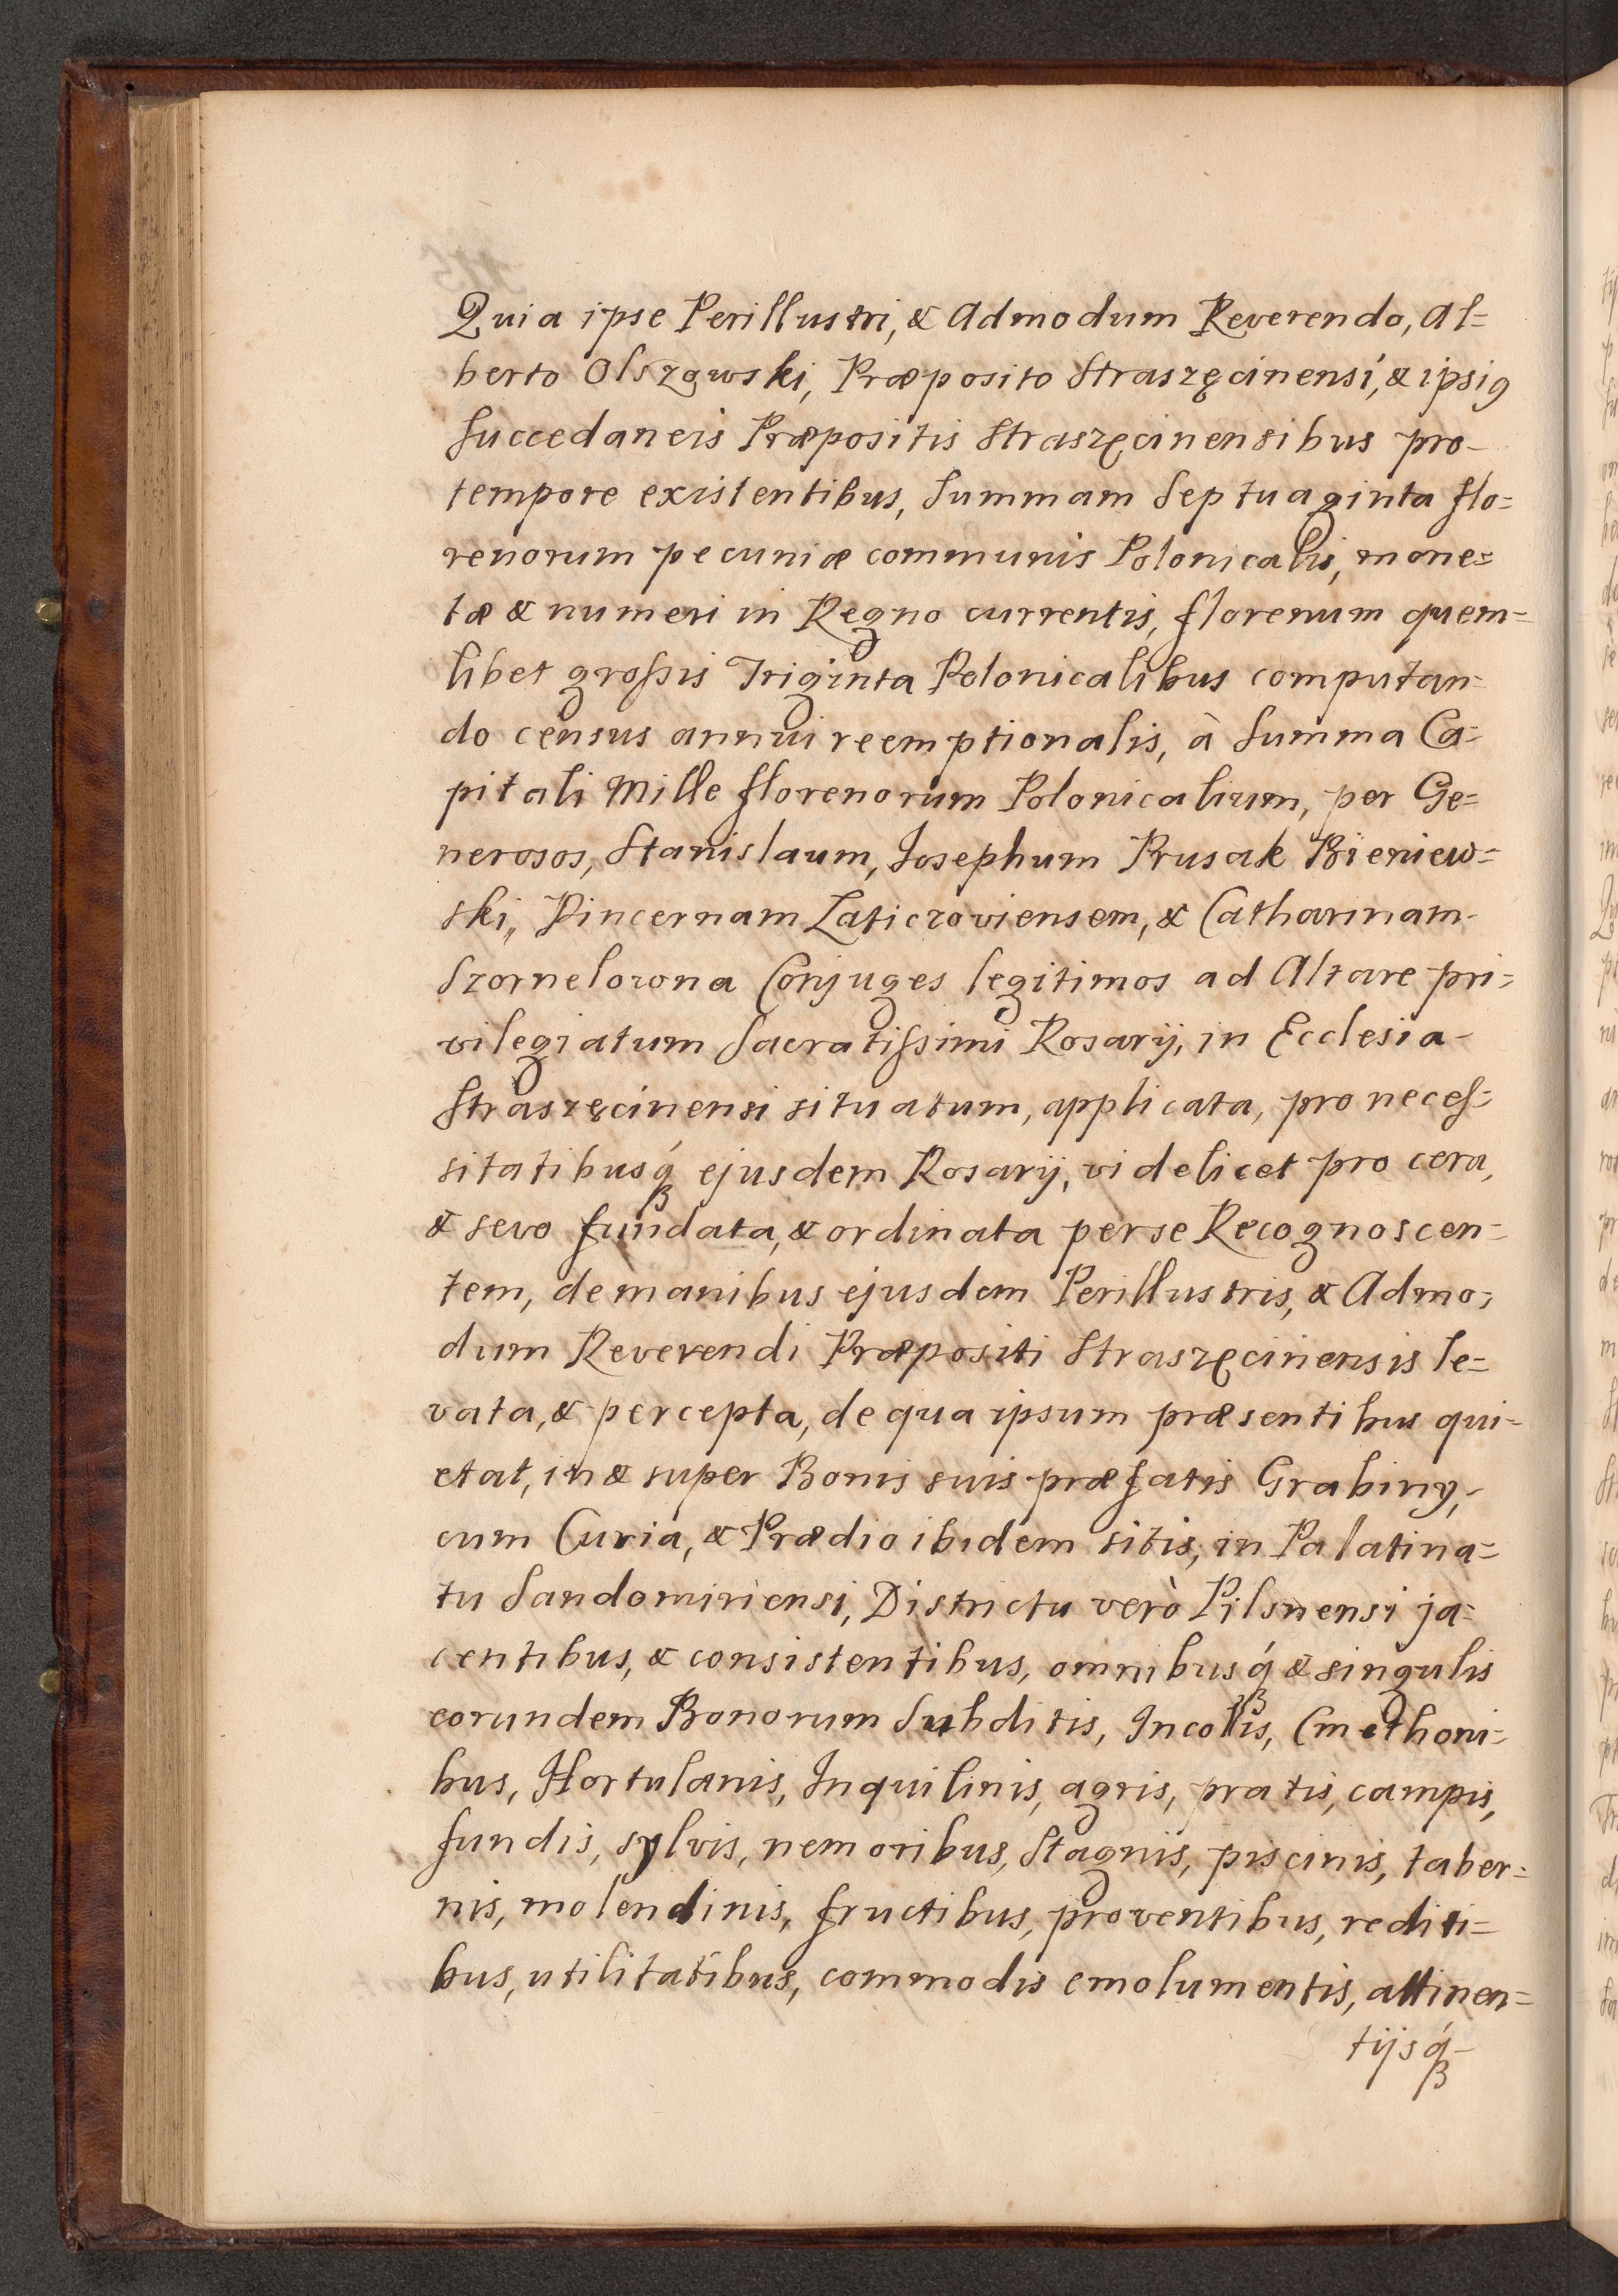 Quia ipse Perillustri, & Admodum Reverendo, Al=
berto Olszowski, Præposito Straszęcinensi, & ipsiꝯ
Succedaneis Præpositis Straszęcinensibus pro-
tempore existentibus, Summam Septuaginta flo=
renorum pecuniæ communis Polonicalis, mone=
tæ & numeri in Regno currentis, florenum quem=
libet grossis Triginta Polonicalibus computan=
do census annui reemptionalis, à Summa Ca=
pitali Mille florenorum Polonicalium, per Ge=
nerosos, Stanislaum, Josephum Prusak Bieniew=
ski,, Pincernam Laticzoviensem, & Catharinam-
Szornelowna Conjuges legitimos ad Altare pri=
vilegiatum Sacratissimi Rosarij, in Ecclesia-
Straszęcinensi situatum, applicata, pro neces=
sitatibusq́ʒ ejusdem Rosarij, videlicet pro cera,
& sevo fundata, & ordinata per se Recognoscen=
tem, de manibus ejusdem Perillustris, & Admo=
dum Reverendi Præpositi Straszęcinensis le=
vata, & percepta, de qua ipsum præsentibus qui=
etat, in & super Bonis suis præfatis Grabiny,-
cum Curia, & Prædio ibidem sitis, in Palatina=
tu Sandomiriensi, Districtu verò Pilsnensi ja=
centibus, & consistentibus, omnibusq́ʒ & singulis
eorundem Bonorum Subditis, Incolis, Cmethoni=
bus, Hortulanis, Inquilinis, agris, pratis, campis,
fundis, sylvis, nemoribus, Stagnis, piscinis, taber=
nis, molendinis, fructibus, proventibus, rediti=
bus, utilitatibus, commodis emolumentis, attinen=
tijsq́ʒ-